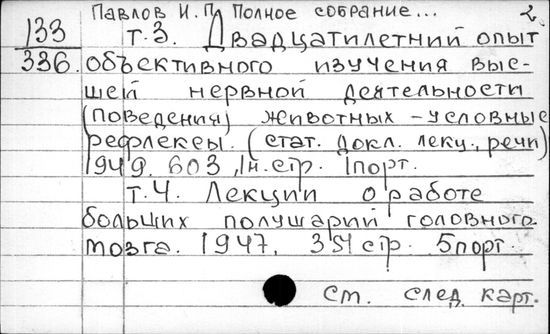 Павлов И.П. Полное собрание... 2.
133 т.3. Двадцатилетний опыт
336. объективного изучения выс-
шей нервной деятельности
(поведения) животных - условные
рефлексы. (стат. докл. лекц., речи)
1949. 603, 1н.стр. 1порт.
т.4. Лекции о работе
больших полушарий головного
мозга. 1947. 351 стр. 5порт.
ст. след. карт.